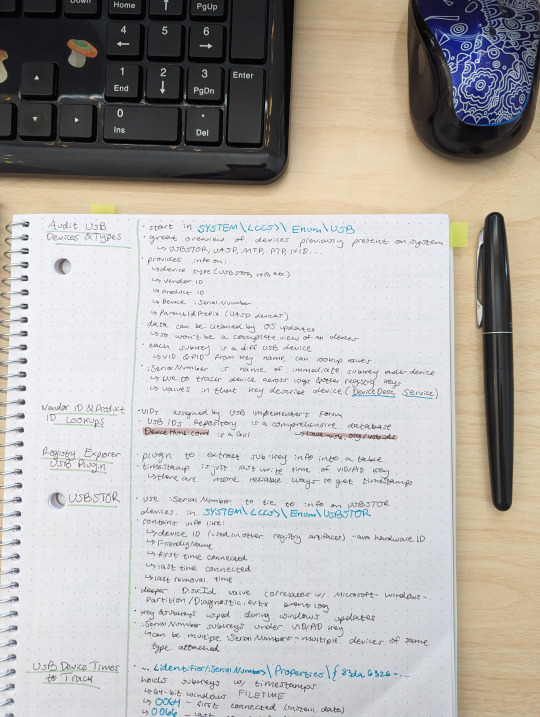 Home
PgUp
4
←
5
6
→
1
End
2
↓
3
PgDn
Enter
0
Ins
.
Del
Audit USB
Devices & Types
· start in SYSTEM\{CCS}\Enum\USB
· great overview of devices previously present on system
↳ USBSTOR, UASP, MTP, PTP, HID...
· provides info on:
↳ device type (USBSTOR, HID, etc)
↳ vendor ID
↳ product ID
↳ Device iSerialNumber
↳ ParentIdPrefix (UASP devices)
data can be cleaned by OS updates
↳ so won't be a complete view of all devices
· each subkey is a diff USB device
↳ VID & PID from key name, can lookup values
· iSerialNumber is name of immediate subkey under device
↳ use to trace device across logs & other registry keys
↳ values in that key describe device (DeviceDesc, Service)
Vendor ID & Product
ID Lookups
· VIDs assigned by USB Implementers Forum
· USB IDs Repository is a comprehensive database
DeviceHunt.com is a GUI
Registry Explorer
USB Plugin
plugin to extract subkey info into a table
timestamp is just last write time of VID/PID key
↳ there are more reliable ways to get timestamps
USBSTOR
· use iSerialNumber to tie to info on USBSTOR
devices in SYSTEM\{CCS}\Enum\USBSTOR
· contains info like:
↳ device ID (used in other registry artifacts) - aka hardware ID
↳ FriendlyName
↳ first time connected
↳ last time connected
↳ last removal time
· deeper DiskId value correlates w/ Microsoft-Windows-
Partition/Diagnostic.evtx event log
· key & subkeys wiped during windows updates
· iSerialNumber subkeys under VID/PID key
↳ can be multiple iSerialNumbers - multiple devices of same
type attached
USB Device Times
to Track
· ...\identifier\iSerialNumber\Properties\{83da6326-...
holds subkeys w/ timestamps
↳ 64-bit windows FILETIME
↳ 0064 - first connected (install date)
↳ 0066 - last